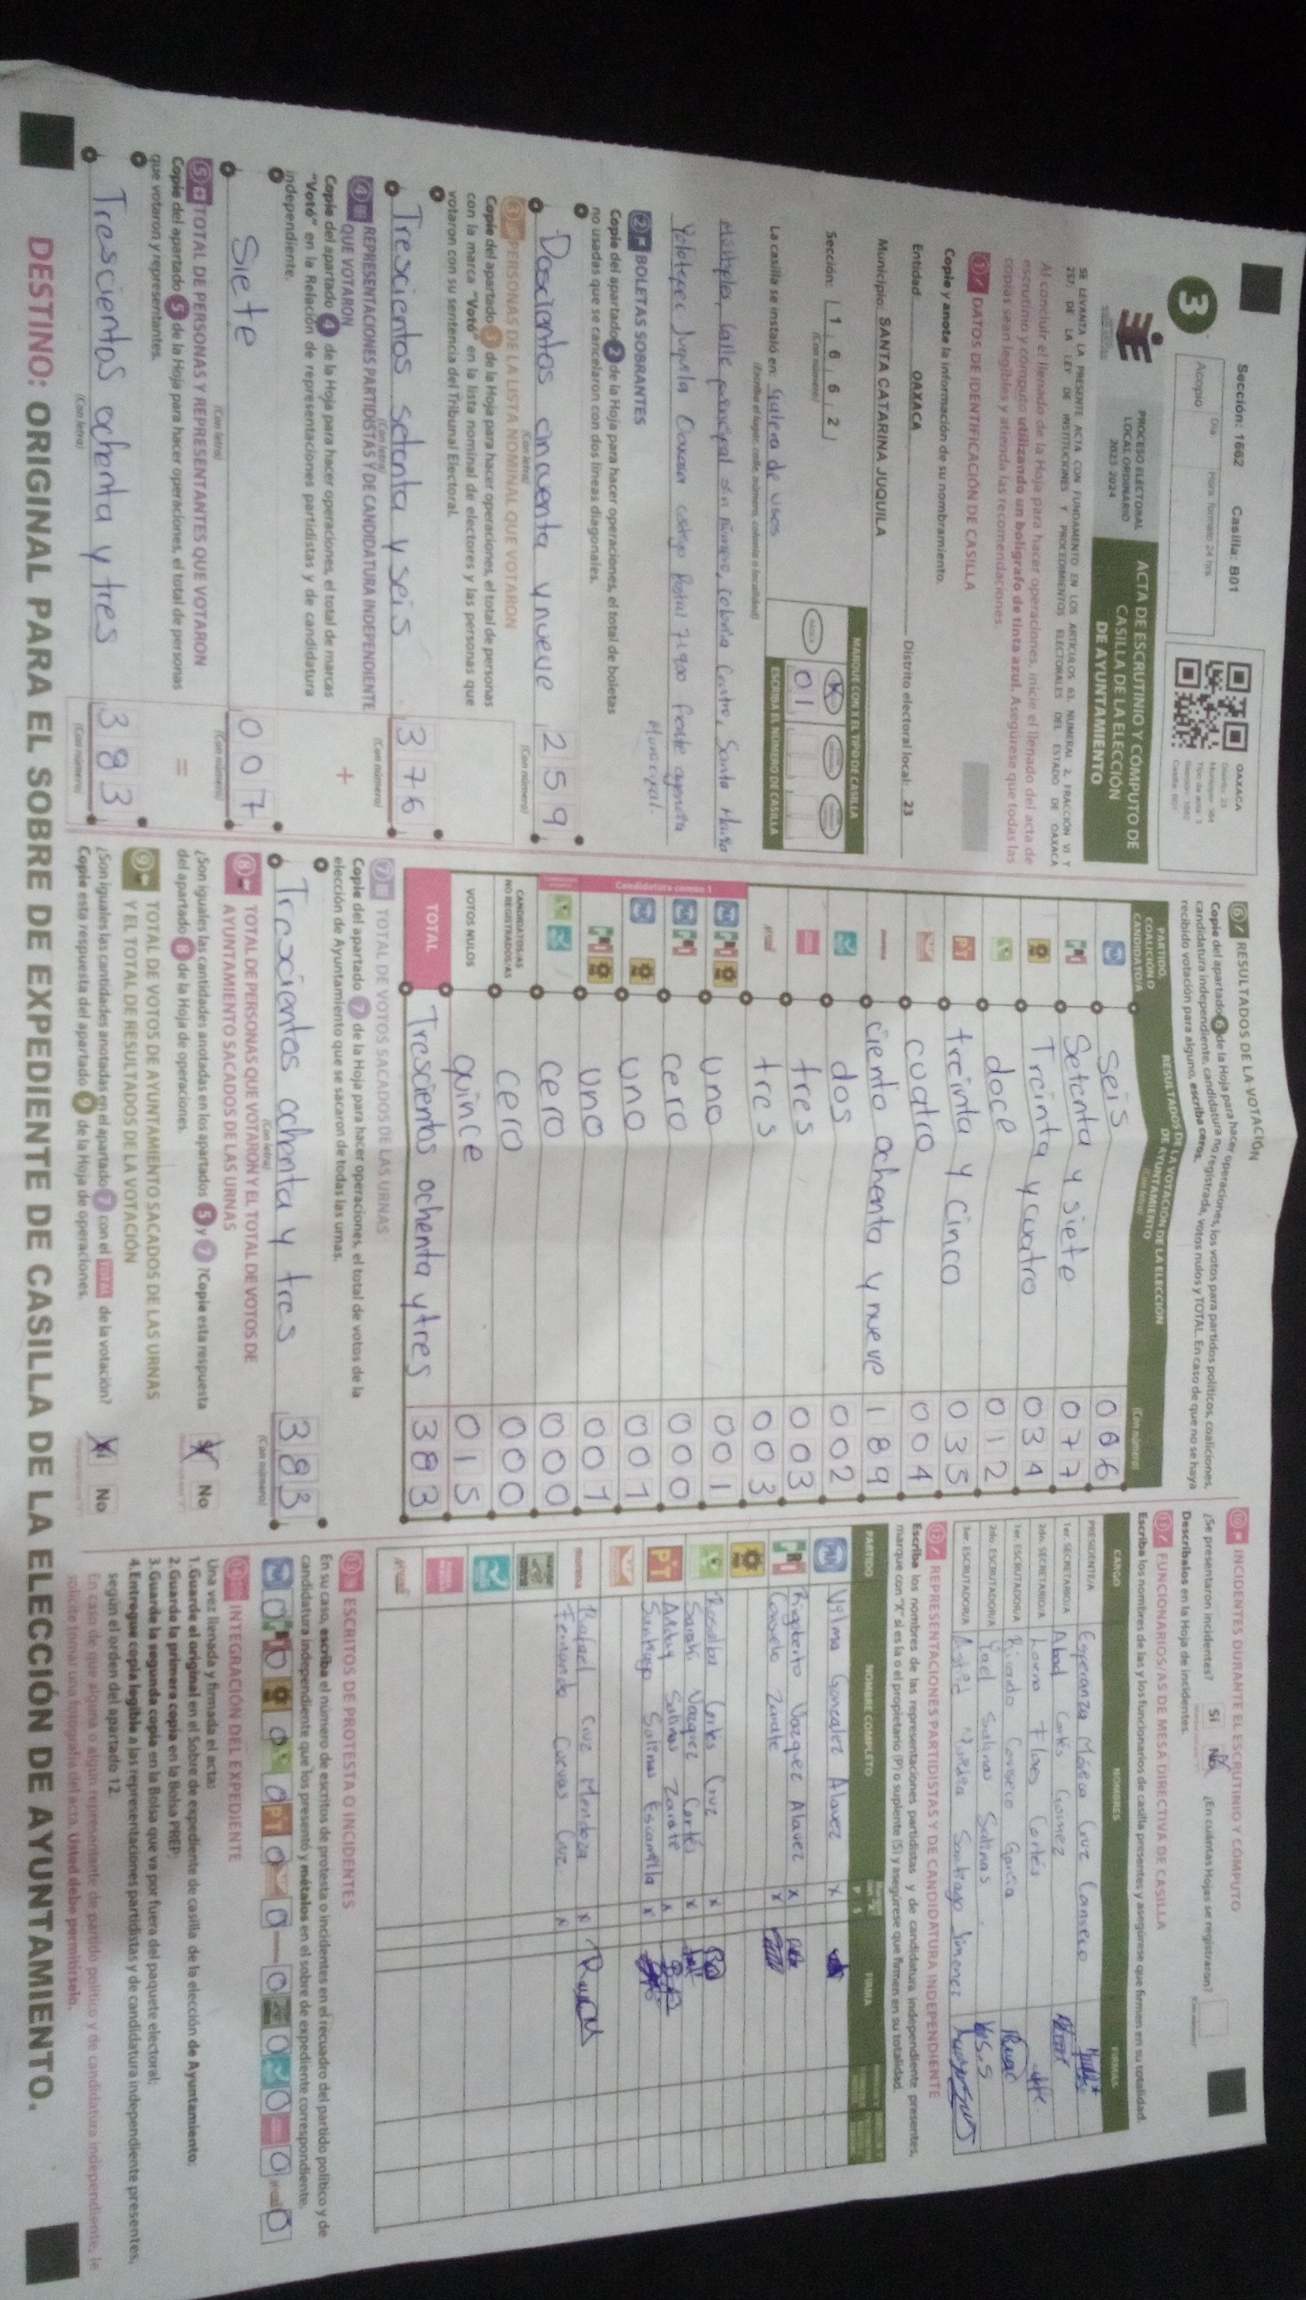 Sección: 1662 Casilla: B01
3
Acopio
Día
Hora formato 24 hrs
OAXACA
PROCESO ELECTORAL
LOCAL ORDINARIO
2023-2024
ACTA DE ESCRUTINIO Y CÓMPUTO DE
CASILLA DE LA ELECCIÓN
DE AYUNTAMIENTO
SE LEVANTA LA PRESENTE ACTA CON FUNDAMENTO EN LOS ARTÍCULOS 63, NUMERAL 2, FRACCIÓN VI Y
257, DE LA LEY DE INSTITUCIONES Y PROCEDIMIENTOS ELECTORALES DEL ESTADO DE OAXACA
Al concluir el llenado de la Hoja para hacer operaciones, inicie el llenado del acta de
escrutinio y cómputo utilizando un bolígrafo de tinta azul. Asegúrese que todas las
copias sean legibles y atienda las recomendaciones.
1 DATOS DE IDENTIFICACIÓN DE CASILLA
Copie y anote la información de su nombramiento.
Entidad: OAXACA Distrito electoral local: 23
Municipio: SANTA CATARINA JUQUILA
Sección: 1 6 6 2
(Con número)
MARQUE CON X EL TIPO DE CASILLA
X
01
ESCRIBA EL NÚMERO DE CASILLA
La casilla se instaló en: Galera de usos
(Escriba el lugar: calle, número, colonia o localidad)
multiples, calle principal sin número, colonia Centro, Santa María
Yolotepec Juquila Oaxaca código Postal 71900 frente agencia
Municipal.
2 BOLETAS SOBRANTES
Copie del apartado 2 de la Hoja para hacer operaciones, el total de boletas
no usadas que se cancelaron con dos líneas diagonales.
Doscientos cincuenta y nueve 259
(Con letra) (Con número)
3 PERSONAS DE LA LISTA NOMINAL QUE VOTARON
Copie del apartado 3 de la Hoja para hacer operaciones, el total de personas
con la marca "Votó" en la lista nominal de electores y las personas que
votaron con su sentencia del Tribunal Electoral.
Trescientos setenta y seis 376
(Con letra) (Con número)
4 REPRESENTACIONES PARTIDISTAS Y DE CANDIDATURA INDEPENDIENTE
QUE VOTARON
+
Copie del apartado 4 de la Hoja para hacer operaciones, el total de marcas
"Votó" en la Relación de representaciones partidistas y de candidatura
independiente.
Siete 007
(Con letra) (Con número)
5 TOTAL DE PERSONAS Y REPRESENTANTES QUE VOTARON
=
Copie del apartado 5 de la Hoja para hacer operaciones, el total de personas
que votaron y representantes.
Trescientos ochenta y tres 383
(Con letra) (Con número)
6 RESULTADOS DE LA VOTACIÓN
Copie del apartado 6 de la Hoja para hacer operaciones, los votos para partidos políticos, coaliciones,
candidatura independiente, candidatura no registrada, votos nulos y TOTAL. En caso de que no se haya
recibido votación para alguno, escriba ceros.
PARTIDO, COALICIÓN O CANDIDATO/A
RESULTADOS DE LA VOTACIÓN DE LA ELECCIÓN DE AYUNTAMIENTO
(Con letra) (Con número)
PAN Seis 006
PRI Setenta y siete 077
PRD Treinta y cuatro 034
doce 012
PT treinta y cinco 035
cuatro 004
morena ciento ochenta y nueve 189
dos 002
tres 003
tres 003
Candidatura común 1
PAN PRI PRD uno 001
PAN PRI cero 000
PAN PRD uno 001
PRI PRD uno 001
cero 000
CANDIDATOS/AS NO REGISTRADOS/AS cero 000
VOTOS NULOS quince 015
TOTAL Trescientos ochenta y tres 383
7 TOTAL DE VOTOS SACADOS DE LAS URNAS
Copie del apartado 7 de la Hoja para hacer operaciones, el total de votos de la
elección de Ayuntamiento que se sacaron de todas las urnas.
Trescientos ochenta y tres 383
(Con letra) (Con número)
8 TOTAL DE PERSONAS QUE VOTARON Y EL TOTAL DE VOTOS DE
AYUNTAMIENTO SACADOS DE LAS URNAS
¿Son iguales las cantidades anotadas en los apartados 5 y 7? Copie esta respuesta
del apartado 8 de la Hoja de operaciones.
Sí No
9 TOTAL DE VOTOS DE AYUNTAMIENTO SACADOS DE LAS URNAS
Y EL TOTAL DE RESULTADOS DE LA VOTACIÓN
¿Son iguales las cantidades anotadas en el apartado 7 con el TOTAL de la votación?
Copie esta respuesta del apartado 9 de la Hoja de operaciones.
Sí No
10 INCIDENTES DURANTE EL ESCRUTINIO Y CÓMPUTO
¿Se presentaron incidentes? Sí No ¿En cuántas Hojas se registraron?
Descríbalos en la Hoja de incidentes.
11 FUNCIONARIOS/AS DE MESA DIRECTIVA DE CASILLA
Escriba los nombres de las y los funcionarios de casilla presentes y asegúrese que firmen en su totalidad.
CARGO NOMBRES FIRMAS
PRESIDENTE/A Esperanza Mónica Cruz Canseco
1er. SECRETARIO/A Abad Cortés Gomez
2do. SECRETARIO/A Lorna Flores Cortés
1er. ESCRUTADOR/A Ricardo Canseco García
2do. ESCRUTADOR/A Yael Salinas Salinas
3er. ESCRUTADOR/A Santiago Jimenez
12 REPRESENTACIONES PARTIDISTAS Y DE CANDIDATURA INDEPENDIENTE
Escriba los nombres de las representaciones partidistas y de candidatura independiente presentes,
marque con "X" si es la o el propietario (P) o suplente (S) y asegúrese que firmen en su totalidad.
PARTIDO NOMBRE COMPLETO P S FIRMA
PAN Vilma Gonzalez Alavez X
PRI Rigoberto Vazquez Alavez X
Consuelo Zarate X
PRD
Rosalba Cortes Cruz X
Sarahi Vazquez Cortés X
PT Salinas Zarate X
Santiago Salinas Escamilla X
morena Rafael Cruz Mendoza X
Fernando Cuevas Cruz X
13 ESCRITOS DE PROTESTA O INCIDENTES
En su caso, escriba el número de escritos de protesta o incidentes en el recuadro del partido político y de
candidatura independiente que los presentó y métalos en el sobre de expediente correspondiente.
14 INTEGRACIÓN DEL EXPEDIENTE
Una vez llenada y firmada el acta:
1.Guarde el original en el Sobre de expediente de casilla de la elección de Ayuntamiento;
2.Guarda la primera copia en la Bolsa PREP;
3.Guarda la segunda copia en la Bolsa que va por fuera del paquete electoral;
4.Entregue copia legible a las representaciones partidistas y de candidatura independiente presentes,
según el orden del apartado 12.
En caso de que alguna o algún representante de partido político y de candidatura independiente, le
solicite tomar una fotografía del acta. Usted debe permitírselo.
DESTINO: ORIGINAL PARA EL SOBRE DE EXPEDIENTE DE CASILLA DE LA ELECCIÓN DE AYUNTAMIENTO.